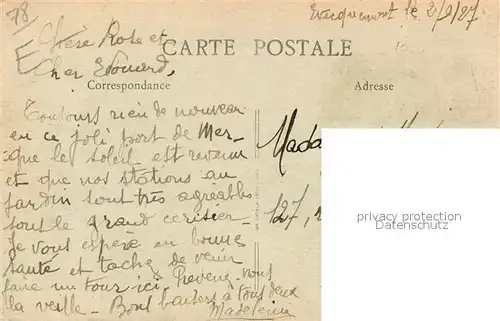 78
Evecquemont le 2/9/27
Chère Rose et
Cher Edouard,
CARTE POSTALE
Correspondance
Adresse
Toujours rien de nouveau
en ce joli port de Mer-
que le soleil est revenu
et que nos stations au
jardin sont très agréables
sous le grand cerisier-
Je vous espère en bonne
santé et tachez de venir
faire un tour ici. Prevenez nous
la veille - Bons baisers à tous deux
Madeleine
Mada
127,
privacy protection
Datenschutz